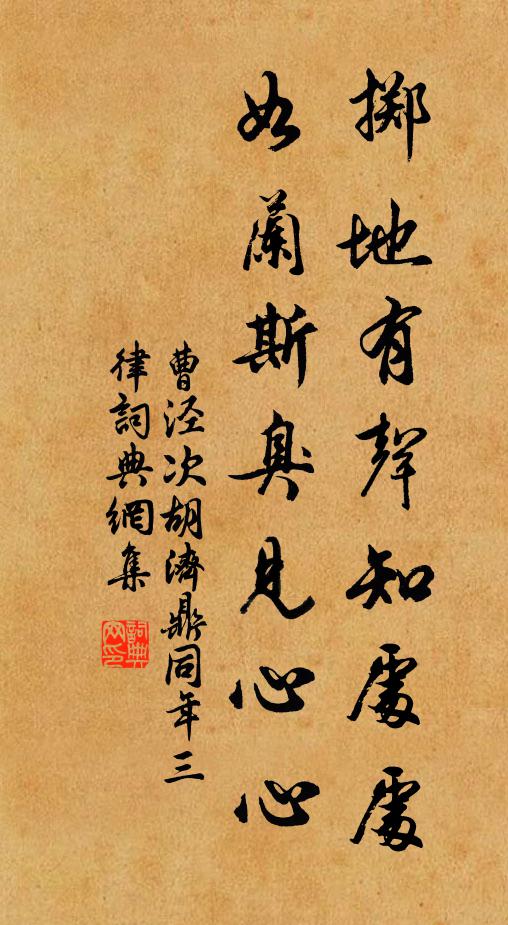 擲地有聲知處處
如蘭斯臭見心心
曹涇次胡濟鼎同年三
律詞典網集
詞典網印